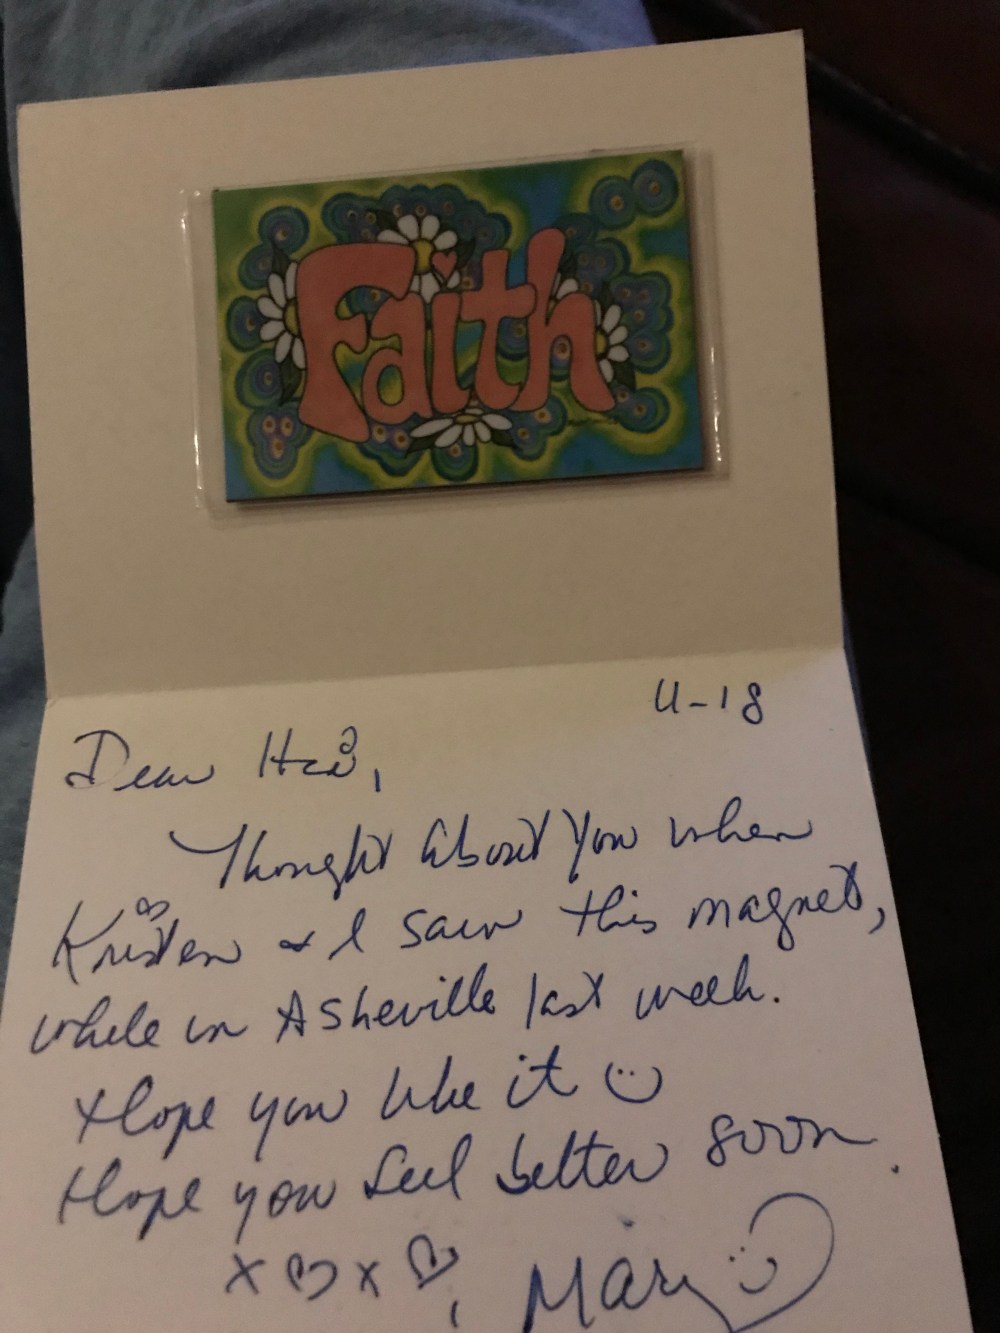 Faith
4-18
Dear
Thought About You when
Kristen & I saw this magnet,
while in Asheville last week.
Hope you like it
Hope you feel better soon.
x x
Mary